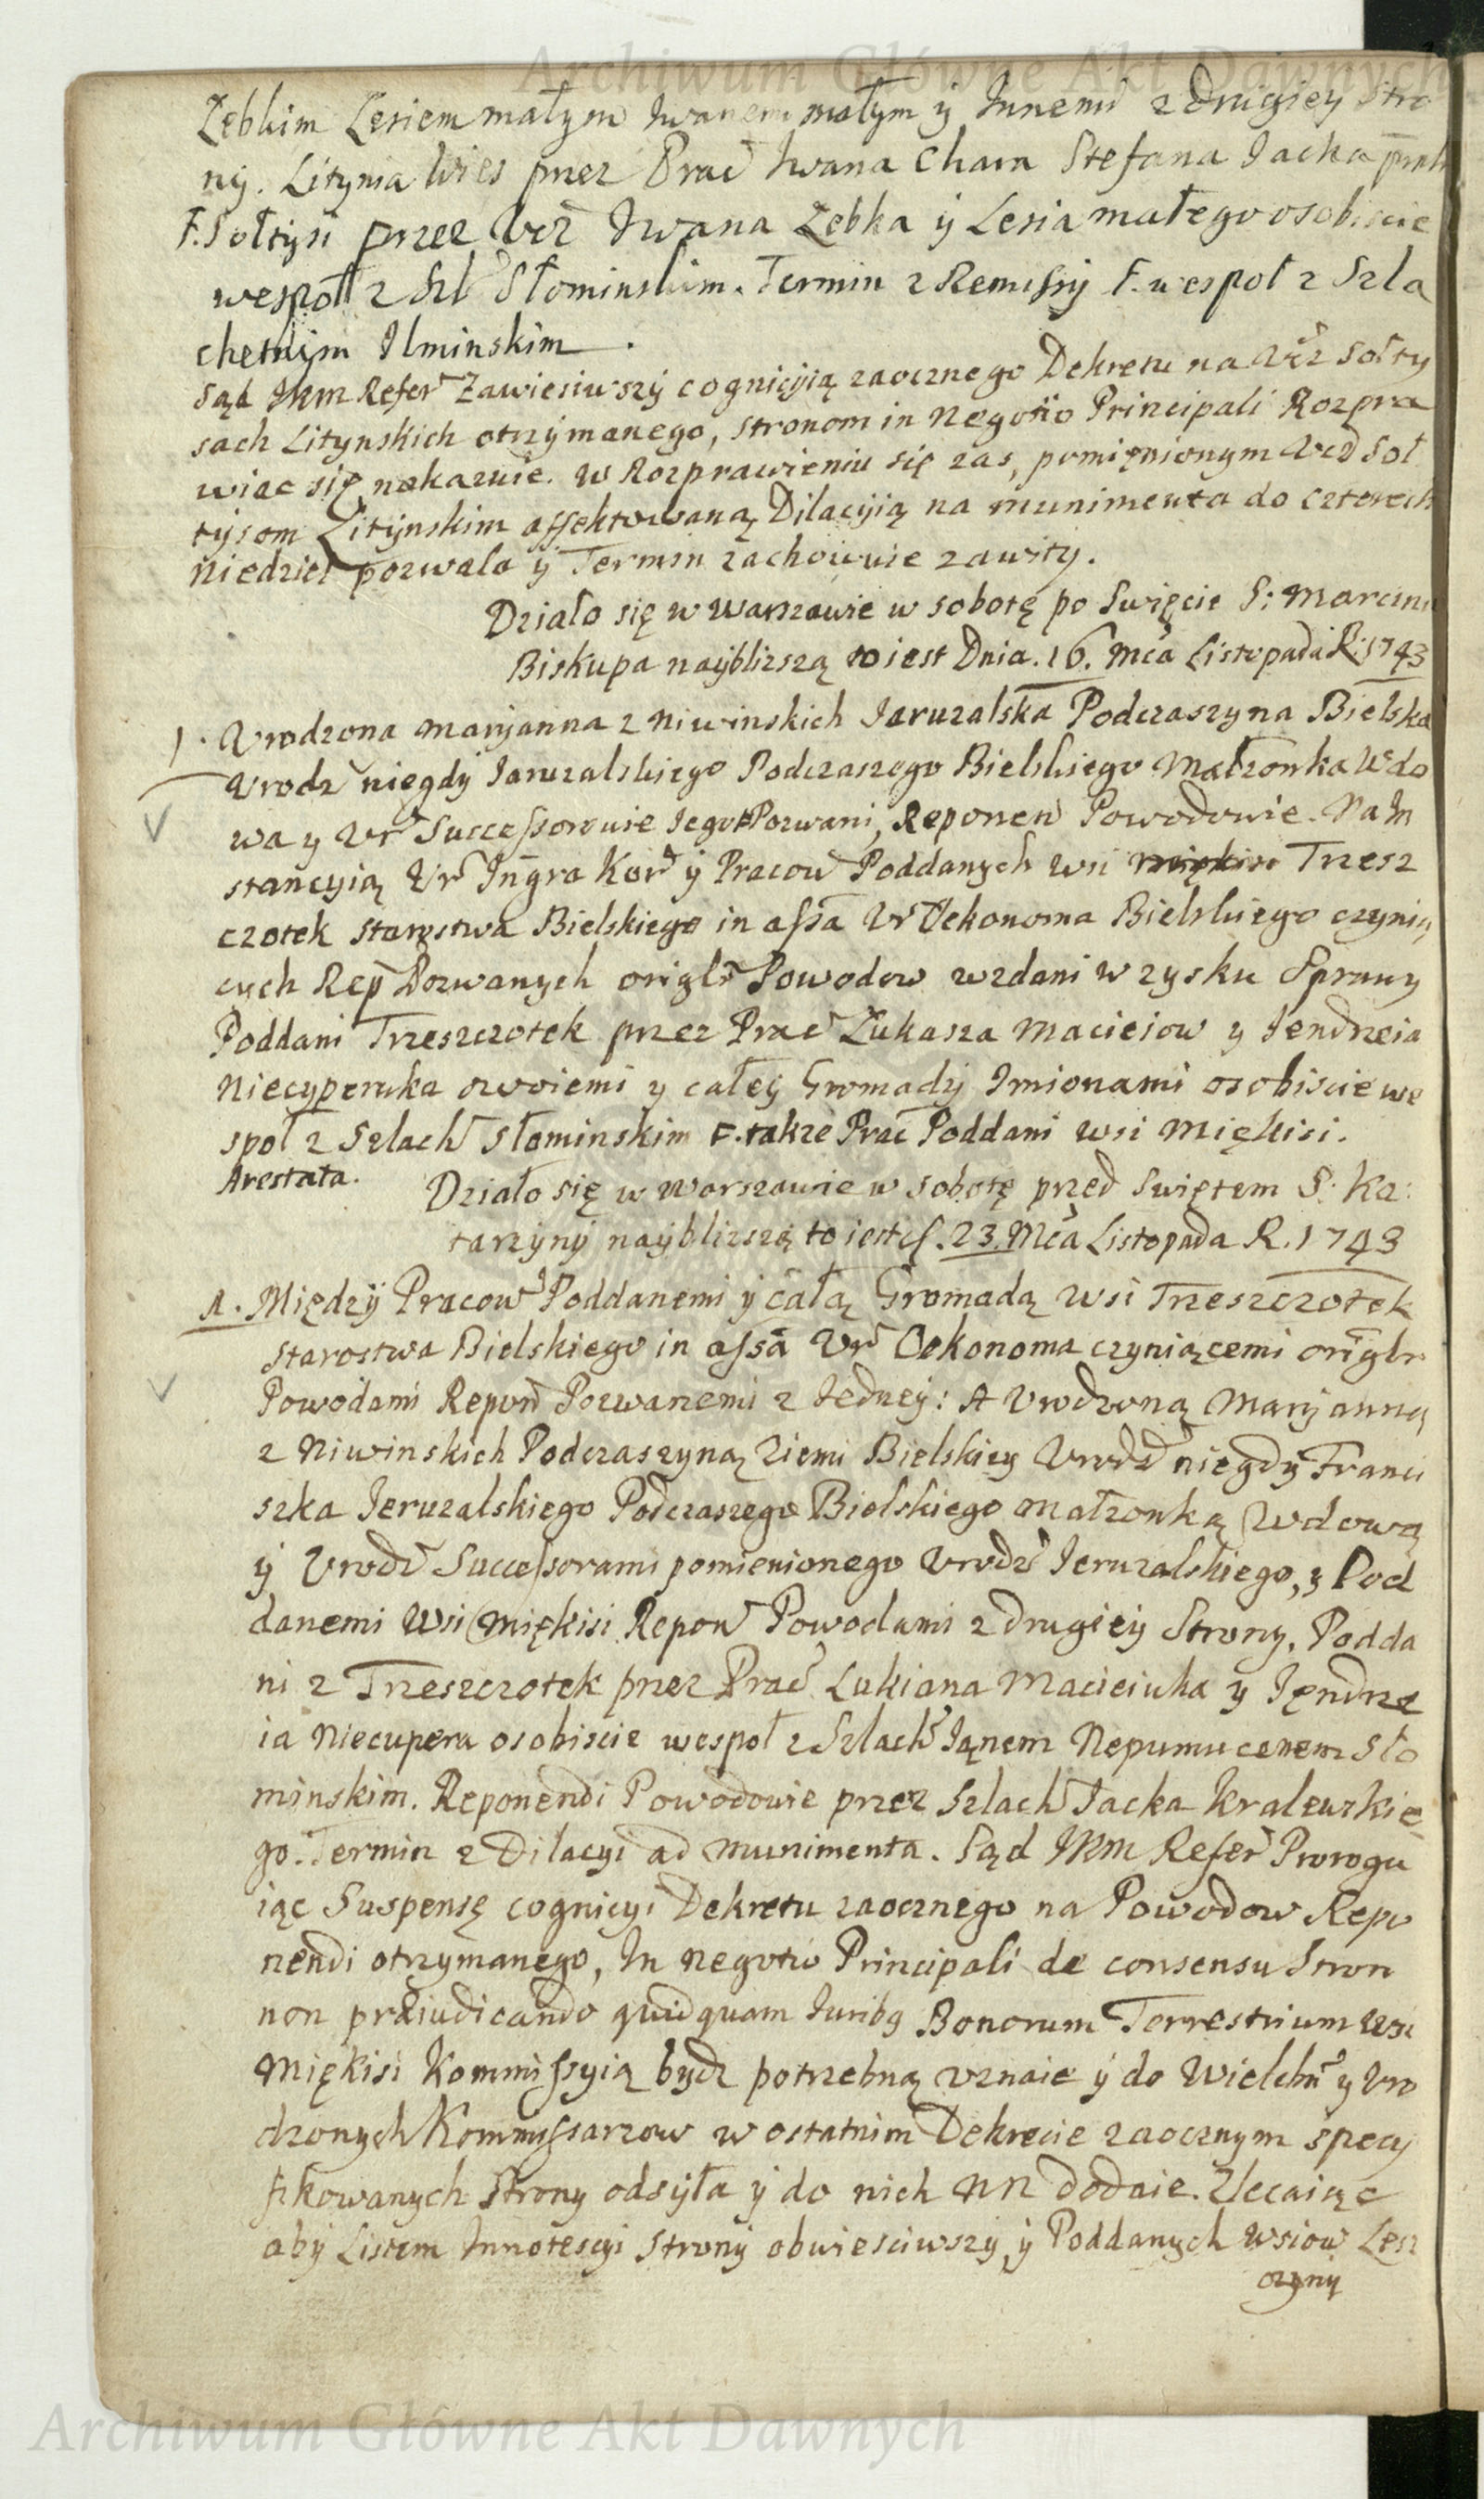 Archiwum Główne Akt Dawnych
Zębkim Lesiem małym Iwanem małym y Innemi z drugiey Stro
ny. Litynia Wies przez Prać Iwana Cham Stefana Jacka
F. Sołtysi przez Ucz Iwana Zębka y Lesia małego osobiscie
wespołł z Szl Słominskim. Termin z Remissyi F. wespoł z Szla
chetnym Ilminskim.
Sąd JKM Refer Zawiesiwszy cognicyią zaocznego Dekretu na Ucz Sołty
sach Litynskich otrzymanego, stronom in Negotio Principali Rozpra
wiac się nakazuie. W Rozprawieniu się zas, pomięnionym Ucz Soł
tysom Litynskim affektowaną Dilacyią na munimenta do czterech
Niedziel pozwala y Termin zachowuie zawity.
Działo się w Warszawie w sobotę po Swięcie S: Marcina
Biskupa nayblizszą to iest Dnia. 16. Mca Listopada R. 1743
1. Urodzona Maryanna z Niwinskich Jaruzalska Podczaszyna Bielska
Urodz niegdy Jaruzalskiego Podczaszego Bielskiego Małzonka Wdo
wa y Ur Successorowie Jego Pozwani, Reponen Powodowie. Na In
stancyią Ur Instygra Kor y Pracow Poddanych wsi Trzesz
czotek Starostwa Bielskiego in assa Ur Oekonoma Bielskiego czynią
cych Rep Pozwanych origlr Powodow wzdani w zysku Sprawy
Poddani Trzeszczotek przez Prac Łukasza Macieiow y Jendrzeia
Niecyperuka swoiemi y całey Gromady Imionami osobiscie we
społ z Szlach Słominskim F. takze Prac Poddani wsi Miękisi.
Arestata.
Działo się w Warszawie w sobotę przed Swiętem S. Ka:
tarzyny nayblizszą to iest d. 23. Mca Listopada R. 1743
1. Między Pracow Poddanemi y całą Gromadą Wsi Trzeszczotek
Starostwa Bielskiego in assa Ur Oekonoma czyniącemi origlr
Powodami Repon Pozwanemi z Jedney: A Urodzoną Maryanną
z Niwinskich Podczaszyną Ziemi Bielskiey Urodz niegdy Franci
szka Jeruzalskiego Podczaszego Bielskiego małzonką Wdową
y Urodz Successorami pomienionego Urodz Jeruzalskiego, y Pod
danemi Wsi Miękisi Repon Powodami z drugiey Strony. Podda
ni z Trzeszczotek przez Prac Lukiana Macieiuka y Jędrze
ia Niecupera osobiscie wespoł z Szlach Janem Nepumucenem Sło
minskim. Reponendi Powodowie przez Szlach Jacka Kralewskie
go. Termin z Dilacyi ad munimenta. Sąd JKM Refer Prorogu
iąc Suspensę cognicyi Dekretu zaocznego na Powodow Repo
nendi otrzymanego, In negotio Principali de consensu Stron
non præiudicando quidquam Juribq Bonorum Terrestrium Wsi
Miękisi Kommissyią bydz potrzebną uznaie y do Wielebn y Uro
dzonych Kommissarzow w ostatnim Dekrecie zaocznym specy
fikowanych Strony odsyła y do nich NN dodaie. Zlecaiąc
aby Listem Innotescyi Strony obwiesciwszy y Poddanych wsiow Lesz
czyny
Archiwum Główne Akt Dawnych